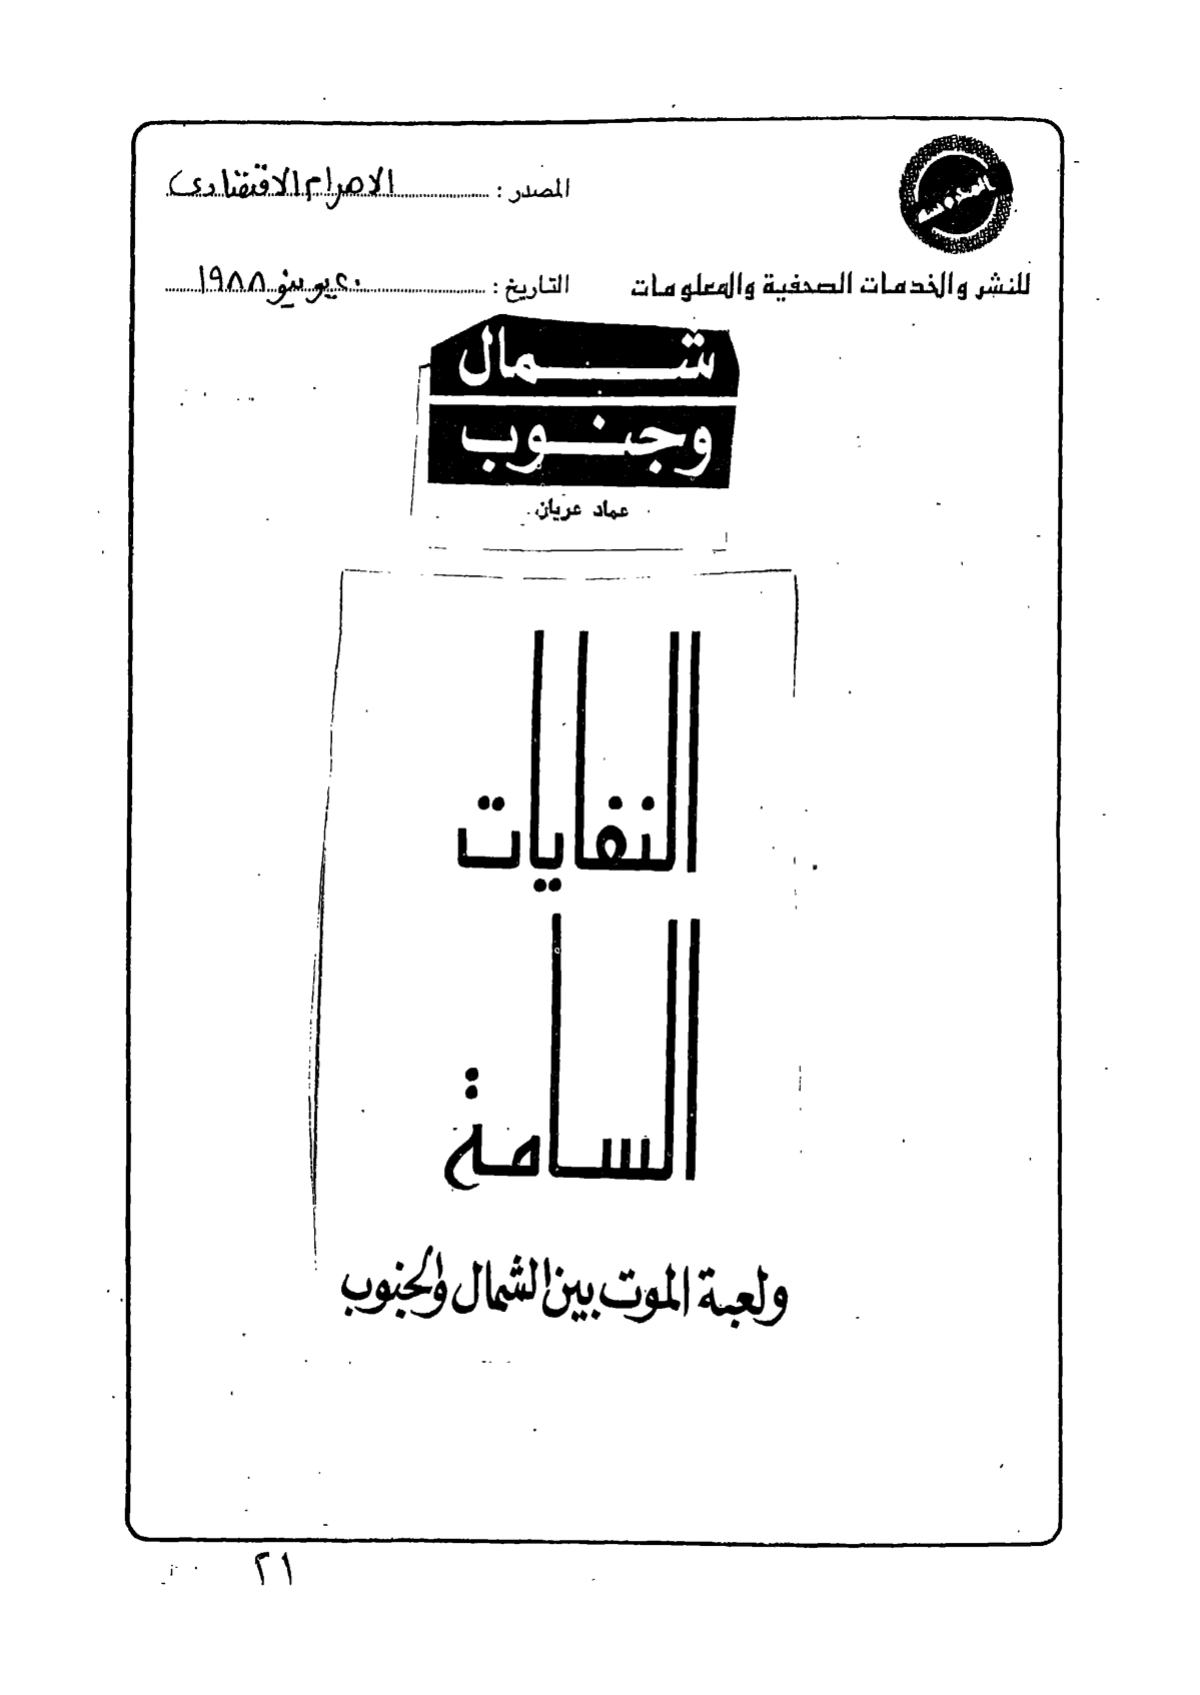 المصدر : الاهرام الاقتصادى
للنشر والخدمات الصحفية والمعلومات
التاريخ : ٢٠ يونيو ١٩٨٨
شمال
وجنوب
عماد عريان
النفايات
السامة
ولعبة الموت بين الشمال والجنوب
٢١